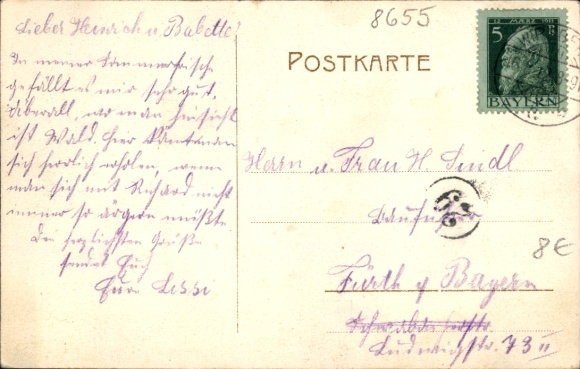 8655
Lieber Heinrich u. Babette!
In meiner Sommerfrische
gefällt es mir sehr gut.
Überall, wo man hinsieht
ist Wald. Hier könnte man
sich herrlich erholen, wenn
man sich mit Richard nicht
immer so ärgern müßte.
Die herzlichsten Grüße
sendet Euch
Eure Lessi
POSTKARTE
12. MÄRZ 1911
5 Pf
BAYERN
Herrn u. Frau H. Lindl
Fürth i/ Bayern
Ludwigstr. 73 II
8€